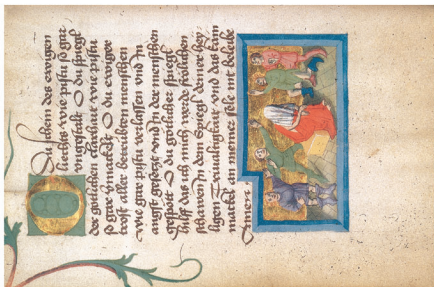 O du schein des ewigen
liechts wie pistu so gar
vngestalt O du spiegl
der gotlichen clarheit wie pistu
so gar O du ewiger
trost aller betrubten menschen
wie gar pistu verlassen vnd in
angst gesetzt vnd in der menschen
gespött O du götlicher spiegl
hilf das ich mich werd frölichen
schawen in dem spiegl deiner hey
ligen vnd das kain
mackel an meiner sele nit beleibe
Amen